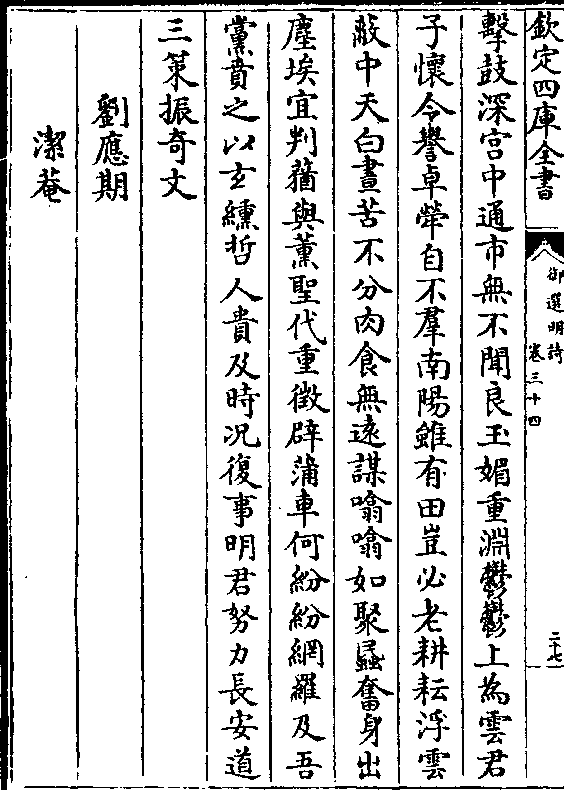 欽定四庫全書
御選明詩
卷三十四
二十七
擊鼓深宫中通市無不聞良玉媚重淵鬱鬱上為雲君
子懷令譽卓犖自不羣南陽雖有田豈必老耕耘浮雲
蔽中天白晝苦不分肉食無遠謀噏噏如聚蟁奮身出
塵埃宜判蕕與薰聖代重徴辟蒲車何紛紛網羅及吾
黨賁之以玄纁哲人貴及時况復事明君努力長安道
三策振奇文
劉應期
潔菴